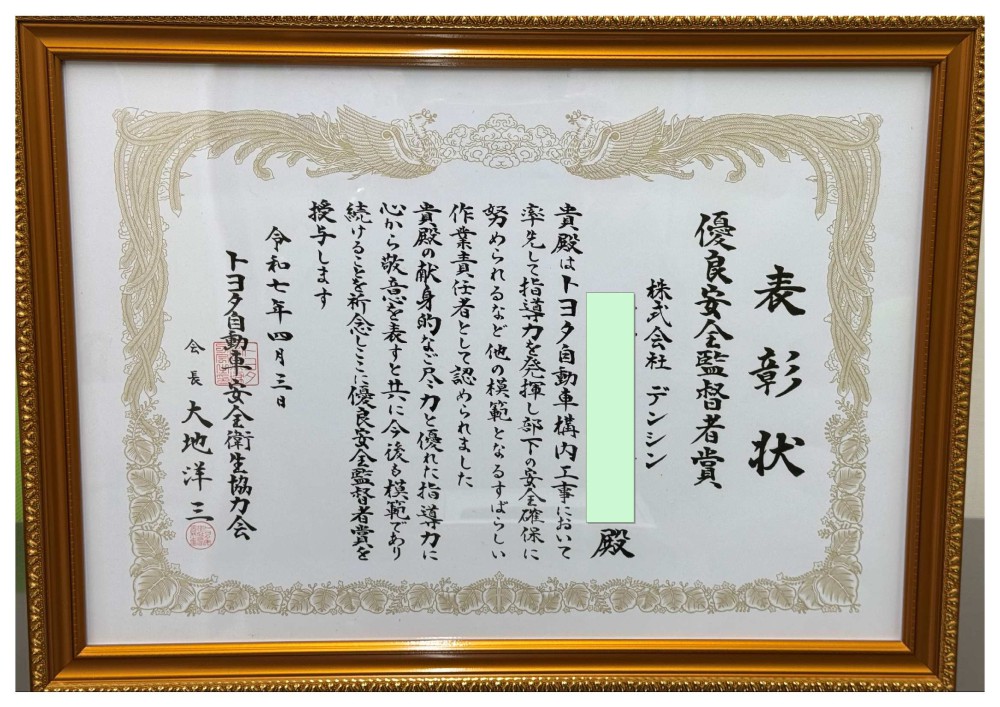 表彰状
優良安全監督者賞
株式会社 デンシン
殿
貴殿はトヨタ自動車構内工事において
率先して指導力を発揮し部下の安全確保に
努められるなど他の模範となるすばらしい
作業責任者として認められました
貴殿の献身的なご尽力と優れた指導力に
心から敬意を表すと共に今後も模範であり
続けることを祈念しここに優良安全監督者賞を
授与します
令和七年四月三日
トヨタ自動車安全衛生協力会
会長 大地洋三